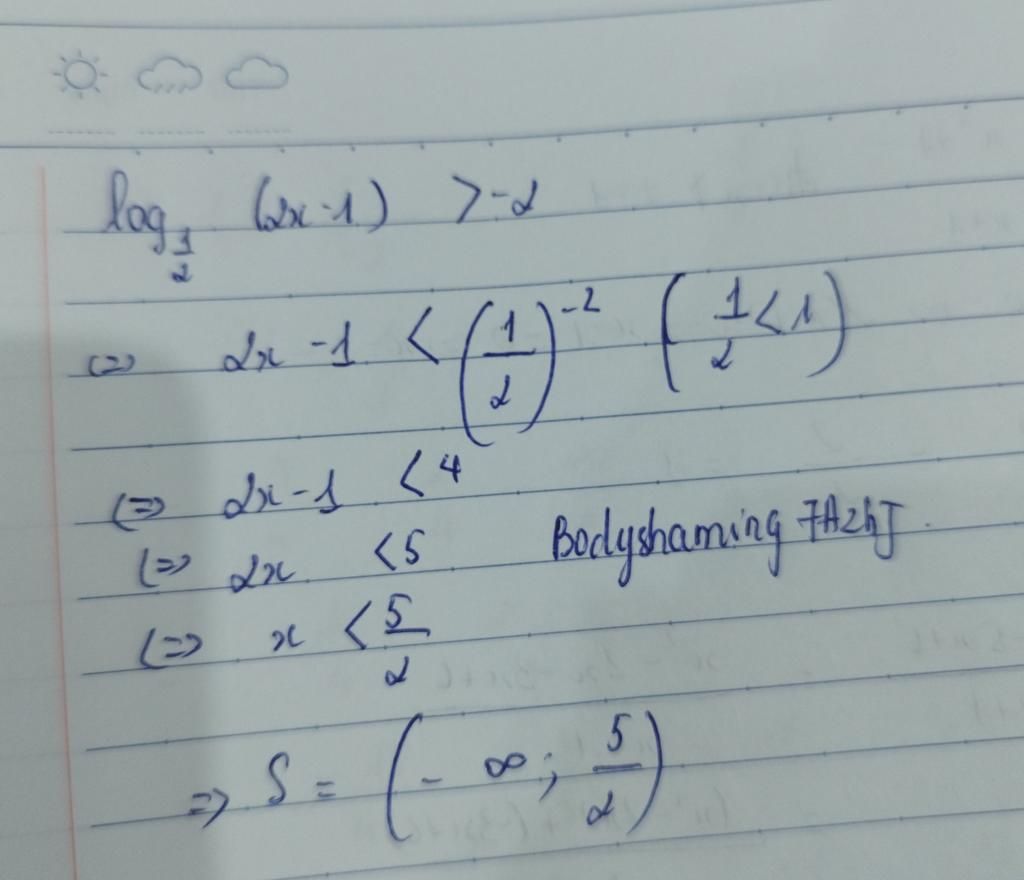 log_{1/2} (2x-1) >-2
(=) 2x -1 < (1/2)^{-2} (1/2 < 1)
(=) 2x-1 < 4
(=) 2x < 5 Bodyshaming
(=) x < 5/2
=) S = (- ∞; 5/2)